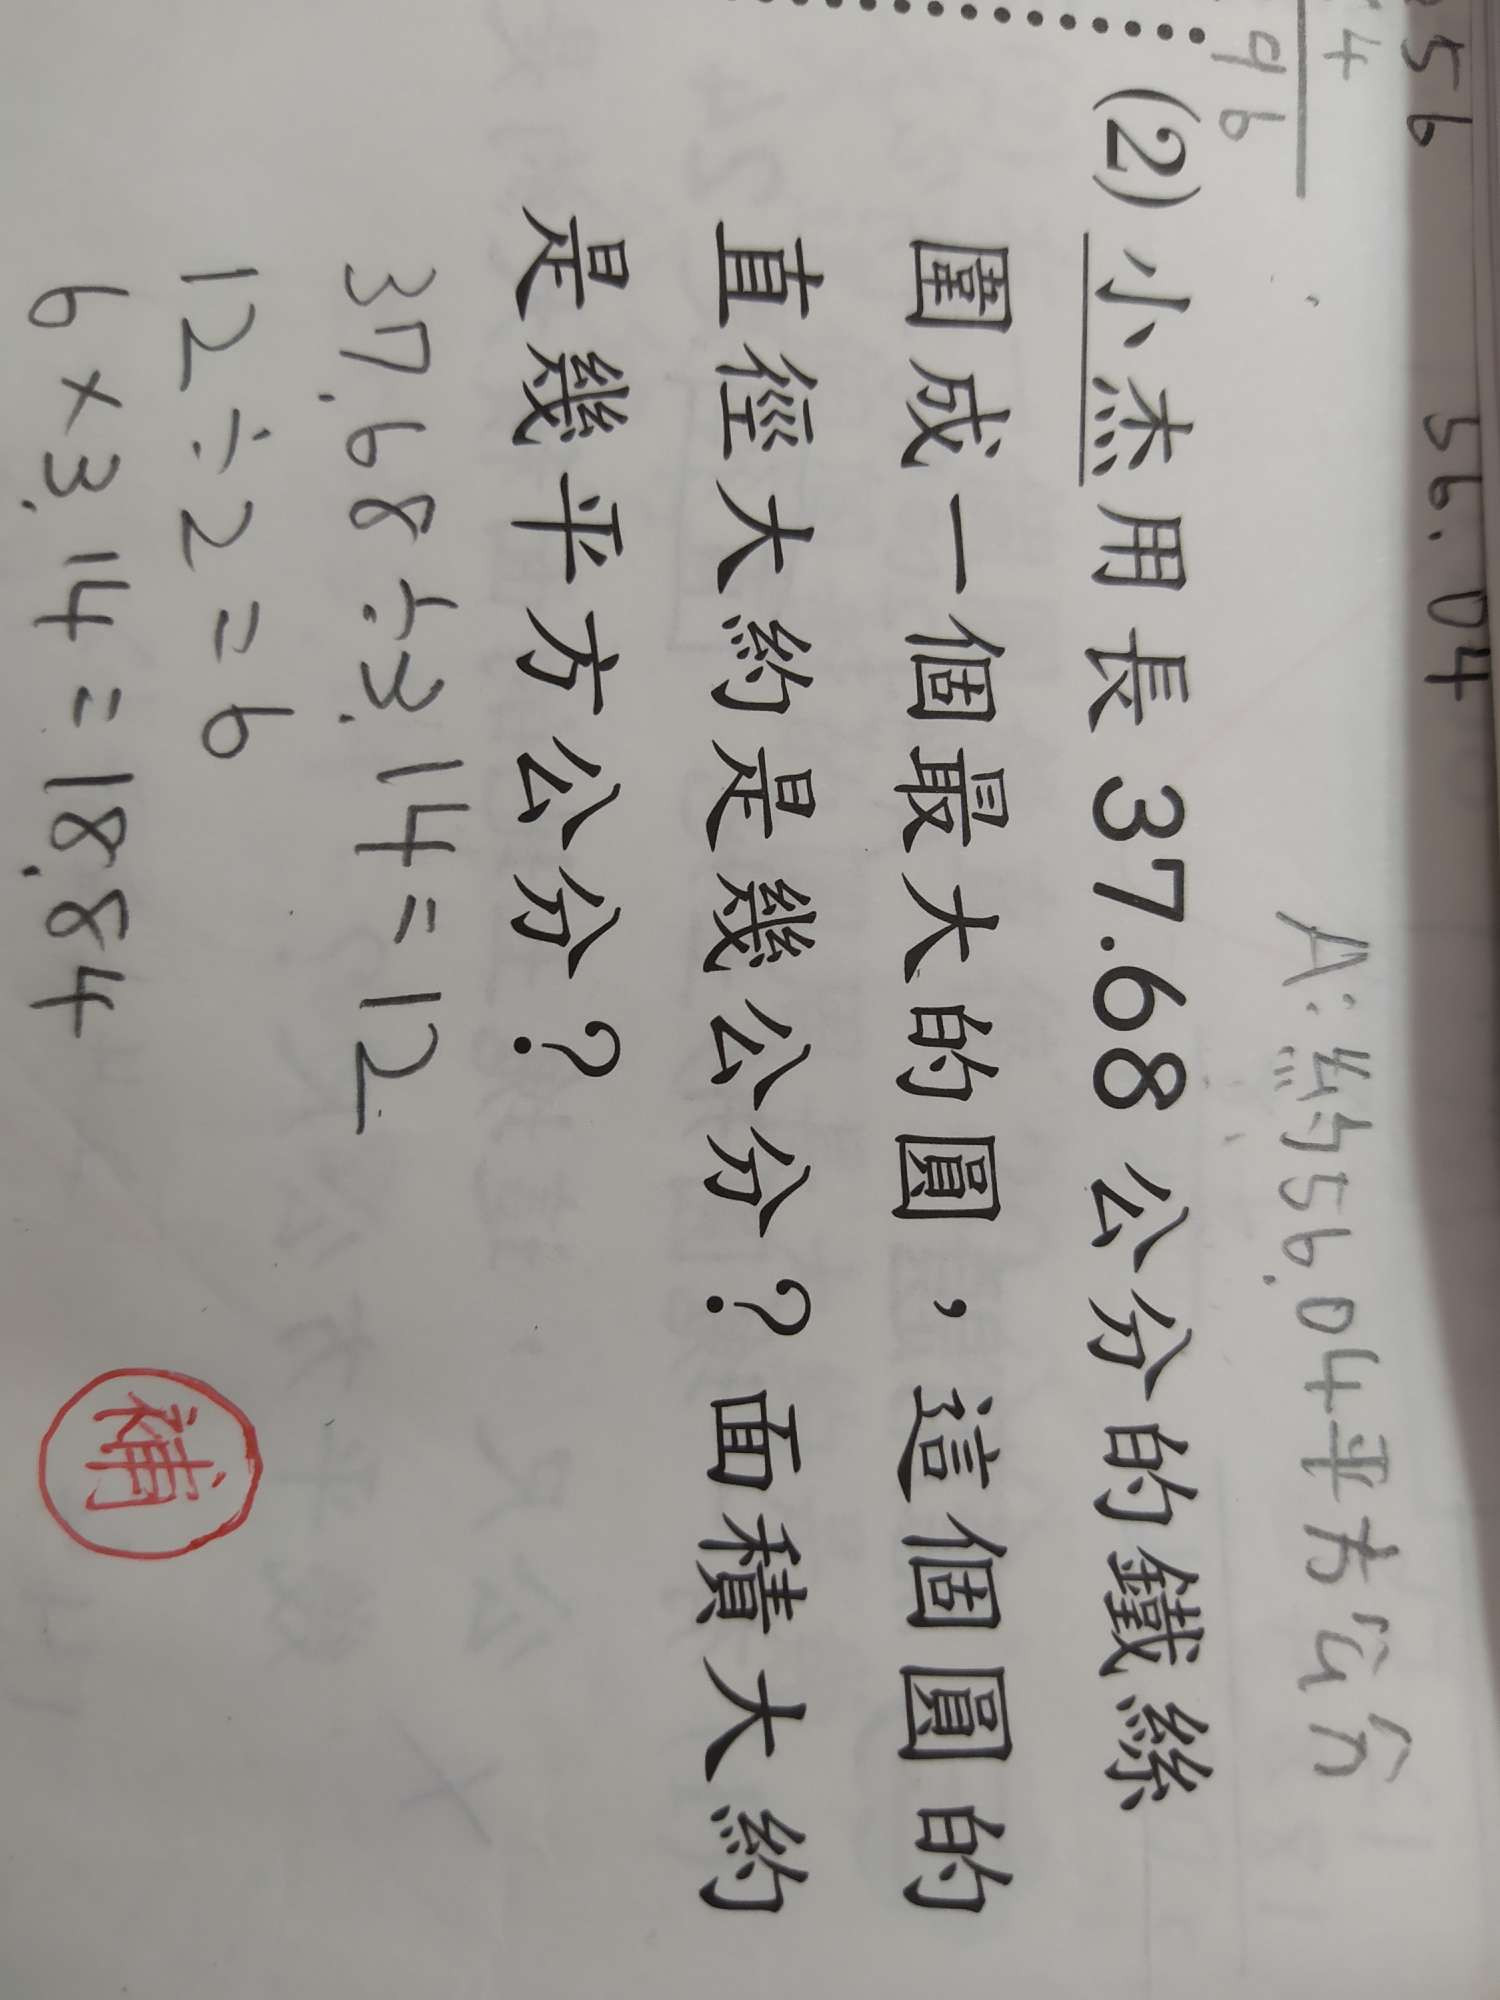 56 56.04
4
96
A:約56.04平方公分
(2)小杰用長 37.68 公分的鐵絲
圍成一個最大的圓，這個圓的
直徑大約是幾公分？面積大約
是幾平方公分？
37.68÷3.14=12
12÷2=6
6×3.14=18.84
補